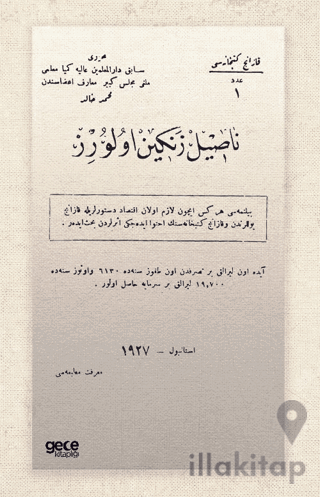 قزانج كتبخانه‌سى
عدد
١
محررى
سابق دارالمعلمين عاليه كيميا معلمى
ملى مجلس كبير معارف اعضاسندن
محمد خالد
ناصيل زنكين اولورز
بيلنمه‌سى هر كس ايچون لازم اولان اقتصاد دستورلريله قازانج
يوللرندن وقازانج كتبخانه‌سنك احتوا ايده‌جكى اثرلردن بحث ايدر .
آيده اون ليرالق بر تصرفدن اون طقوز سنه‌ده ٦١٣٠ واوتوز سنه‌ده
١٩,٧٠٠ ليرالق بر سرمايه حاصل اولور .
استانبول – ١٩٢٧
معرفت مطبعه‌سى
gece
kitaplığı
illakitap